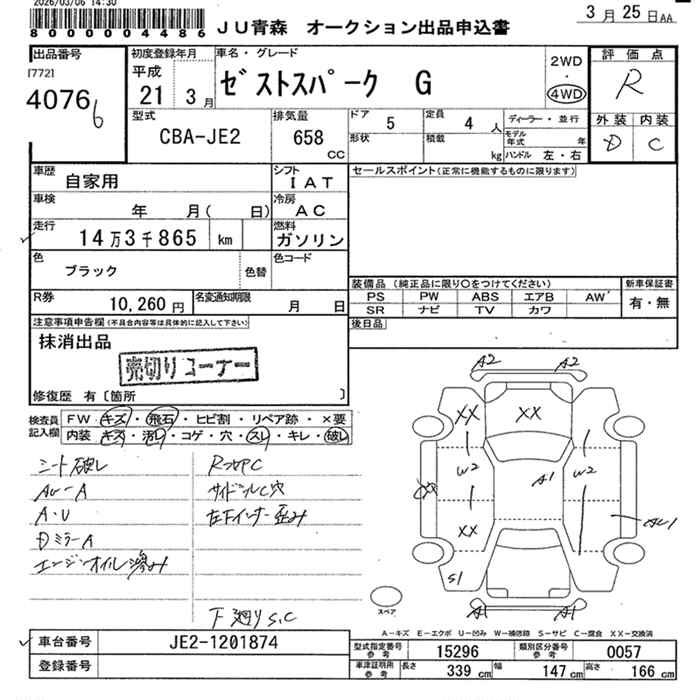 2026/03/06 14:30
8 0 0 0 0 0 4 4 8 6
JU青森 オークション出品申込書
3月25日AA
出品番号
[772]
4076
6
初度登録年月
平成
21 3月
車名・グレード
ゼストスパーク G
2WD
・
4WD
評価点
R
外装 内装
D C
型式
CBA-JE2
排気量
658
CC
ドア
5
形状
定員
4 人
積載
kg
ディーラー・並行
モデル年式 年
ハンドル 左・右
車歴
自家用
シフト
IAT
セールスポイント(正常に機能するものに限ります)
車検
年 月( 日)
冷房
AC
走行
14万3千865 km
燃料
ガソリン
色
ブラック
色替
色コード
装備品 (純正品に限り○をつけてください)
PS PW ABS エアB AW
SR ナビ TV カワ
新車保証書
有・無
R券
10,260 円
名変通知期限
月 日
後日品
注意事項申告欄(不具合内容等は具体的に記入して下さい)
抹消出品
売切りコーナー
修復歴 有〔箇所 〕
検査員記入欄
FW キズ・飛石・ヒビ割・リペア跡・×要
内装 キズ・汚れ・コゲ・穴・スレ・キレ・破れ
シート破レ
A・U
DミラーA
エンジンオイル滲み
サイドシルC穴
左下インナー歪み
下廻りS.C
A2 A2
XX XX
W2 A1 W2
XX
S1
A1 A1
スペア
A-キズ E-エクボ U-凹み W-補修跡 S-サビ C-腐食 XX-交換済
車台番号
JE2-1201874
登録番号
型式指定番号
参考
15296
類別区分番号
参考
0057
車津証明用
参考
長さ 339 cm
幅 147 cm
高さ 166 cm